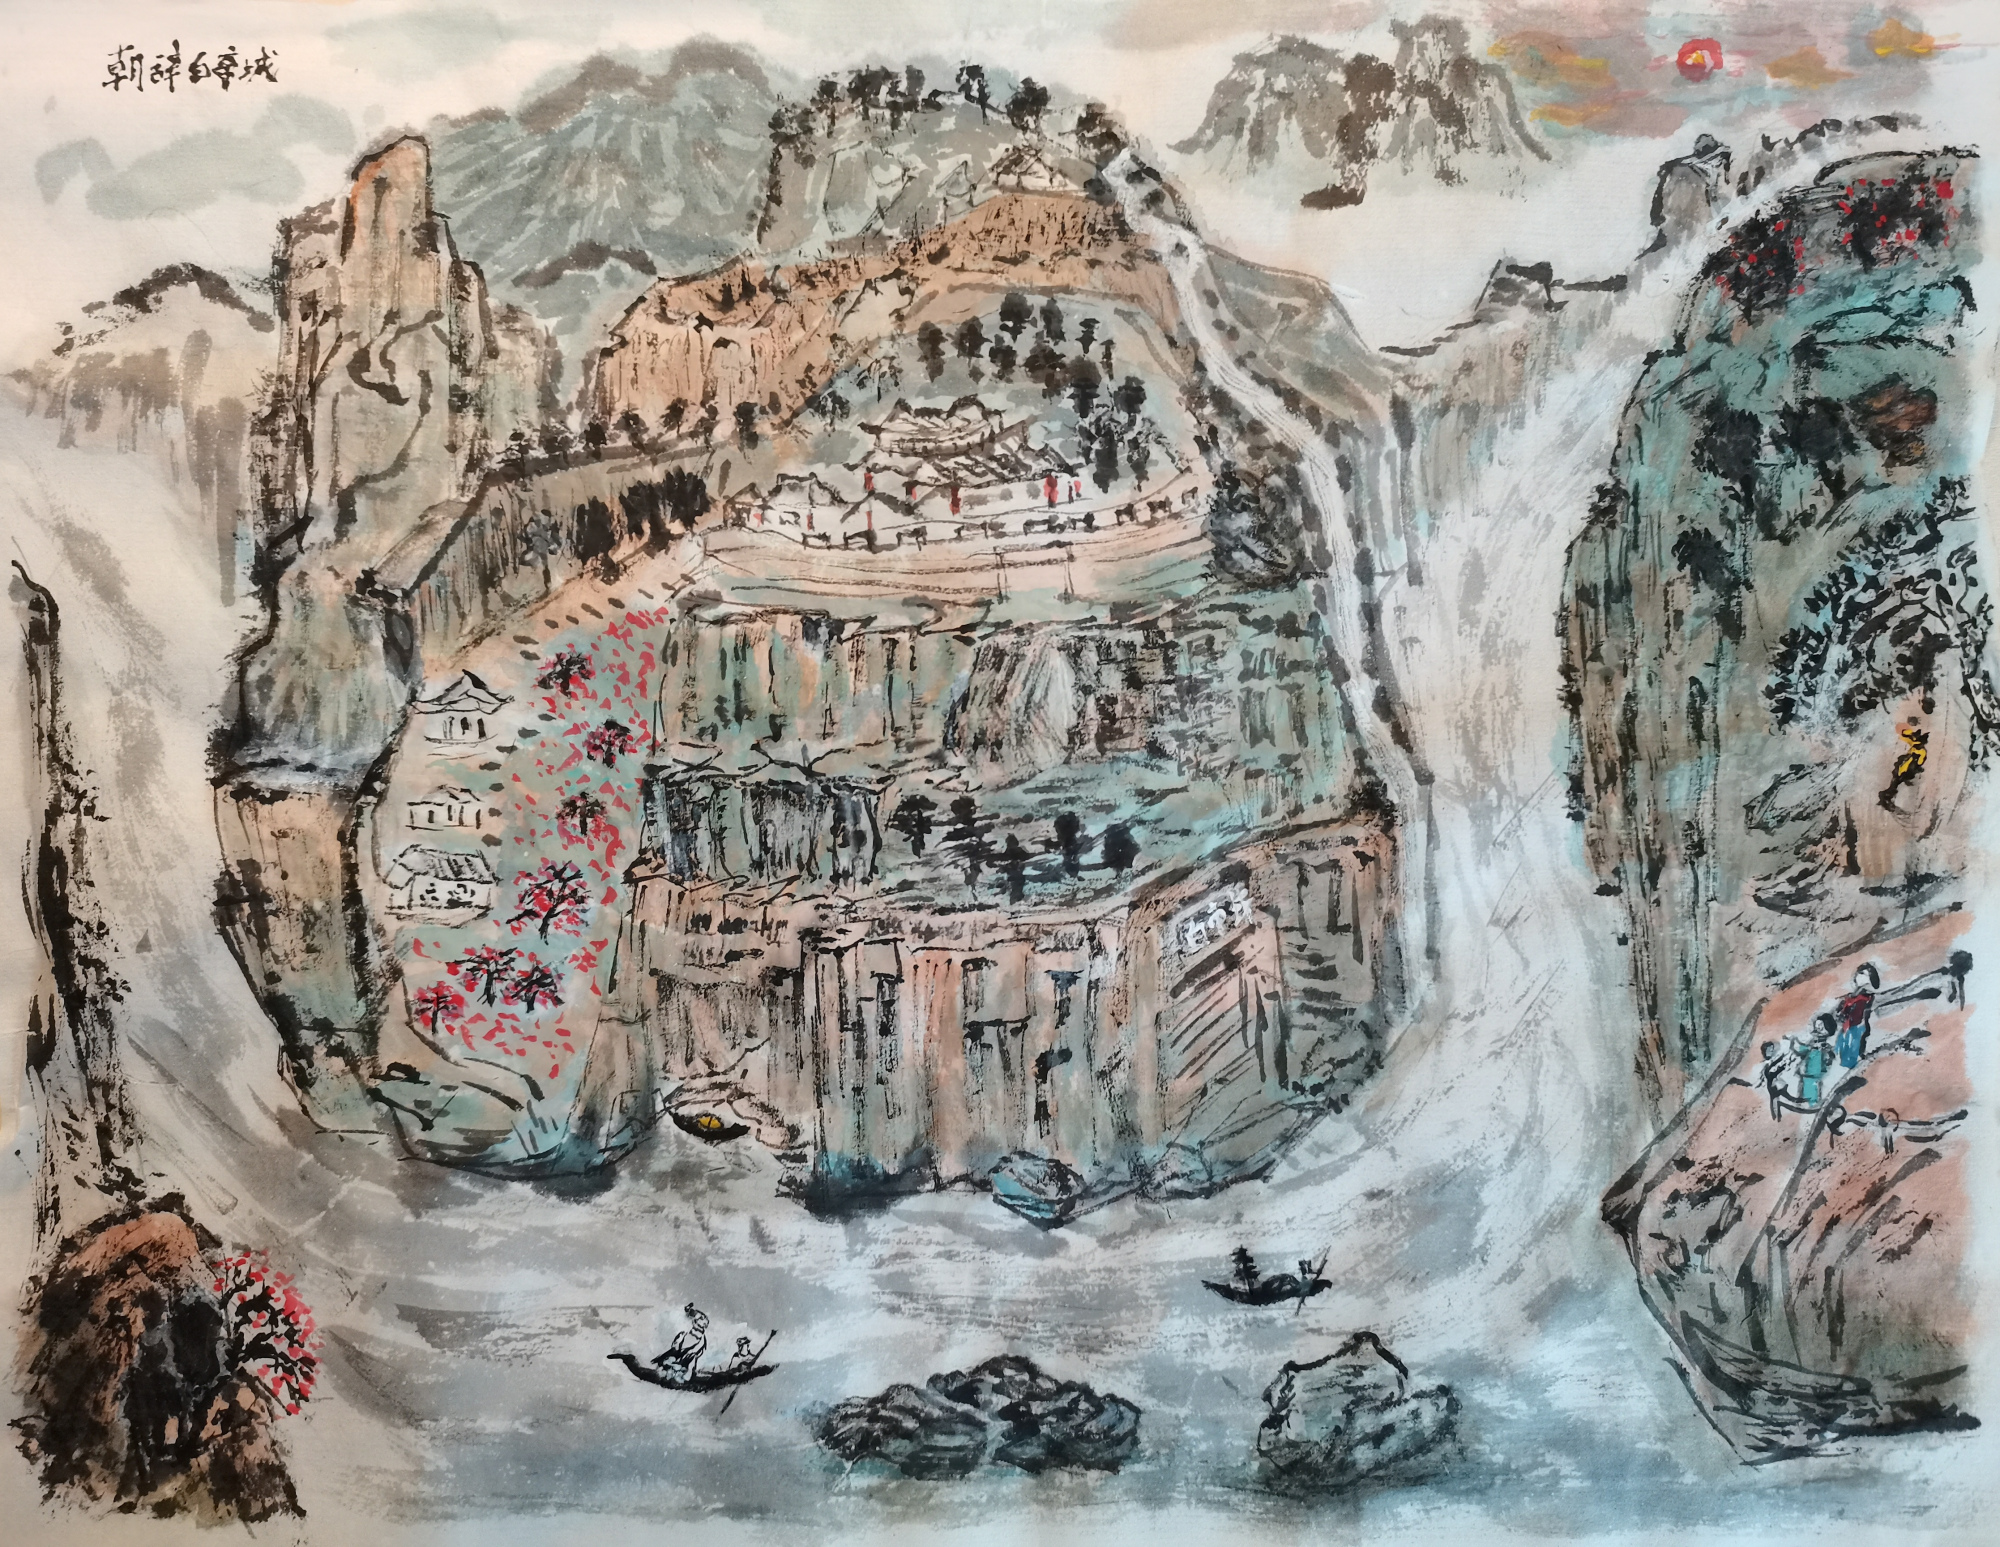 朝辞白帝城
白帝城